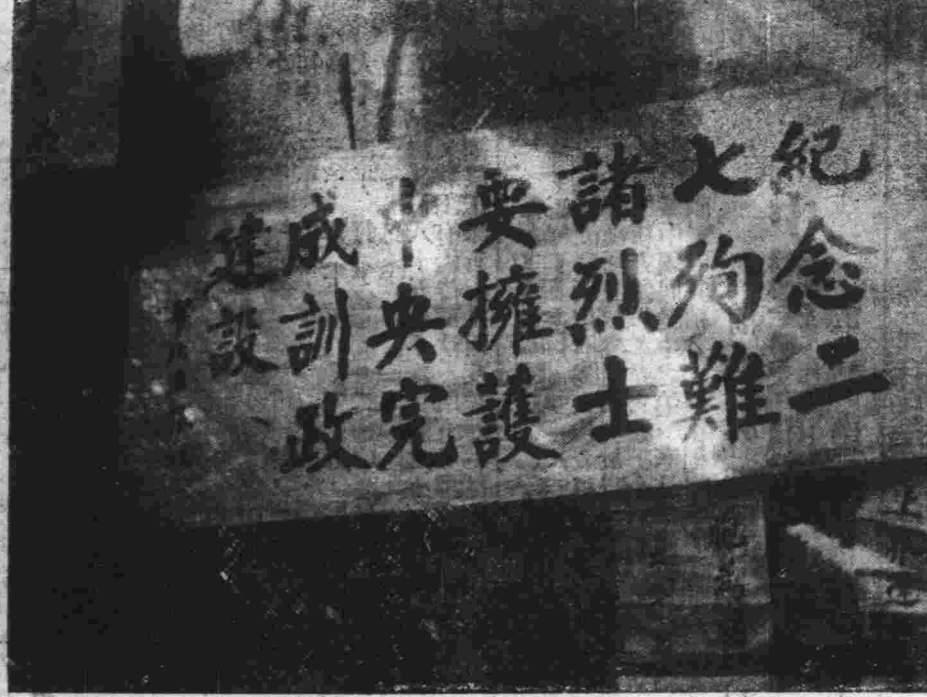 紀念二
七殉難
諸烈士
要擁護
中央完
成訓政
建設